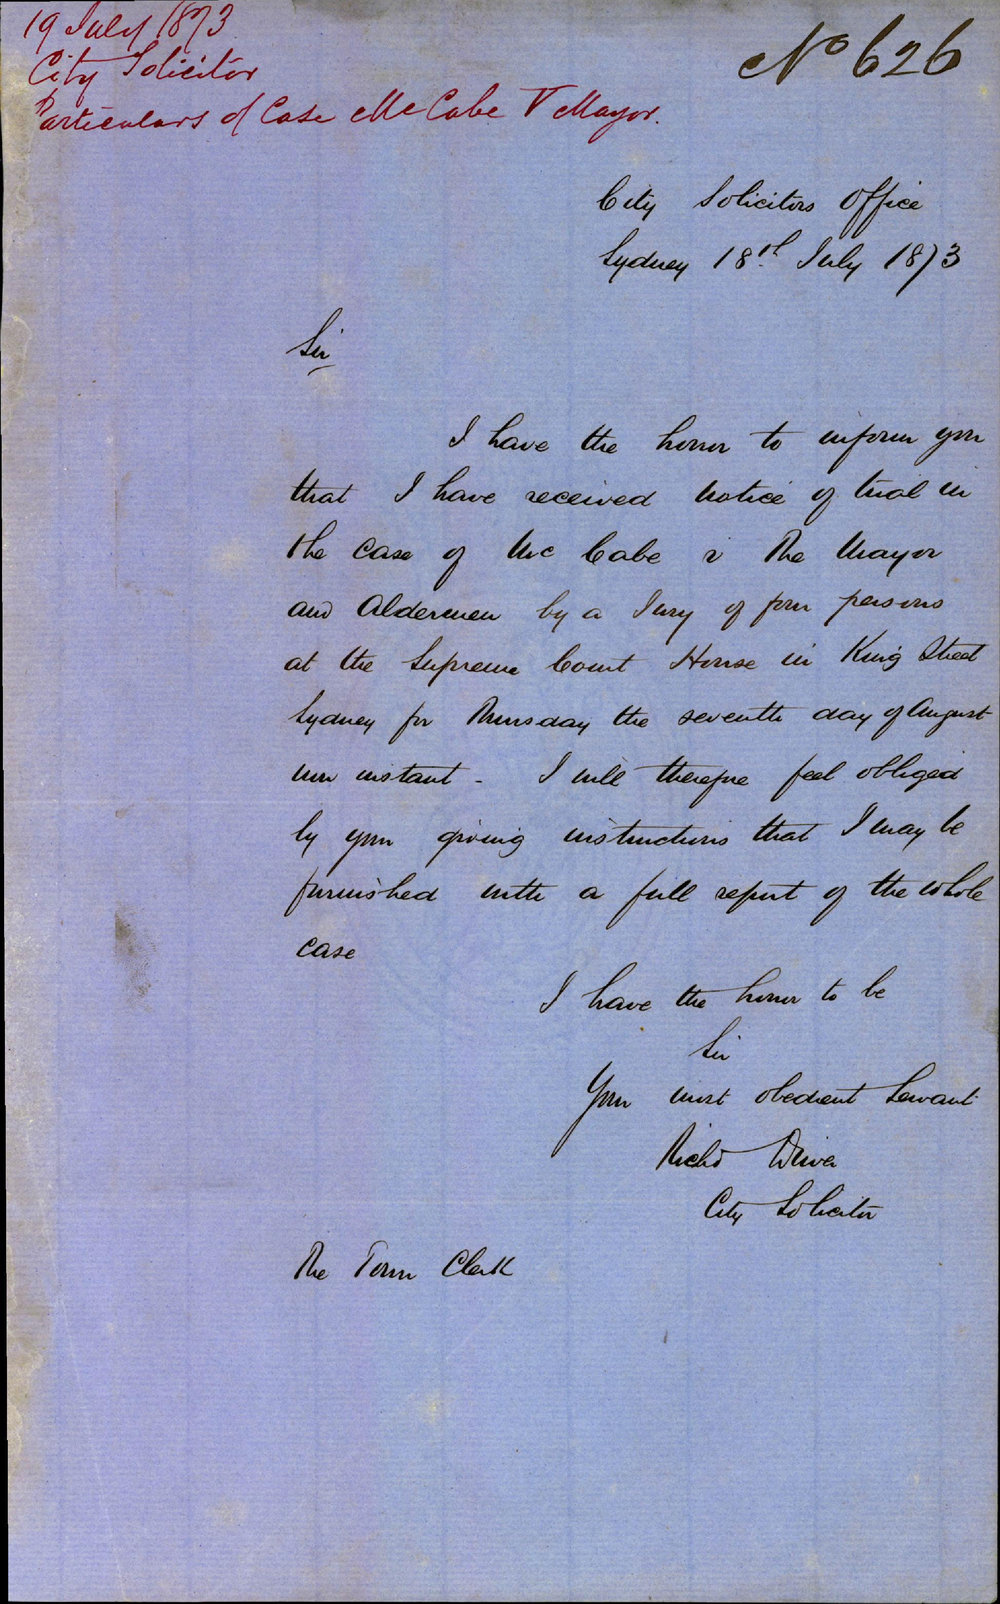 19 July 1873
City Solicitor
Particulars of Case McCabe V Mayor.
No 626
City Solicitors Office
Sydney 18th July 1873
Sir
I have the honor to inform you
that I have received notice of trial in
the case of Mc Cabe v The Mayor
and Aldermen by a Jury of four persons
at the Supreme Court House in King Street
Sydney for Thursday the seventh day of August
now instant - I will therefore feel obliged
by your giving instructions that I may be
furnished with a full report of the whole
case
I have the honor to be
Sir
Your most obedient Servant
Richd Driver
City Solicitor
The Town Clerk